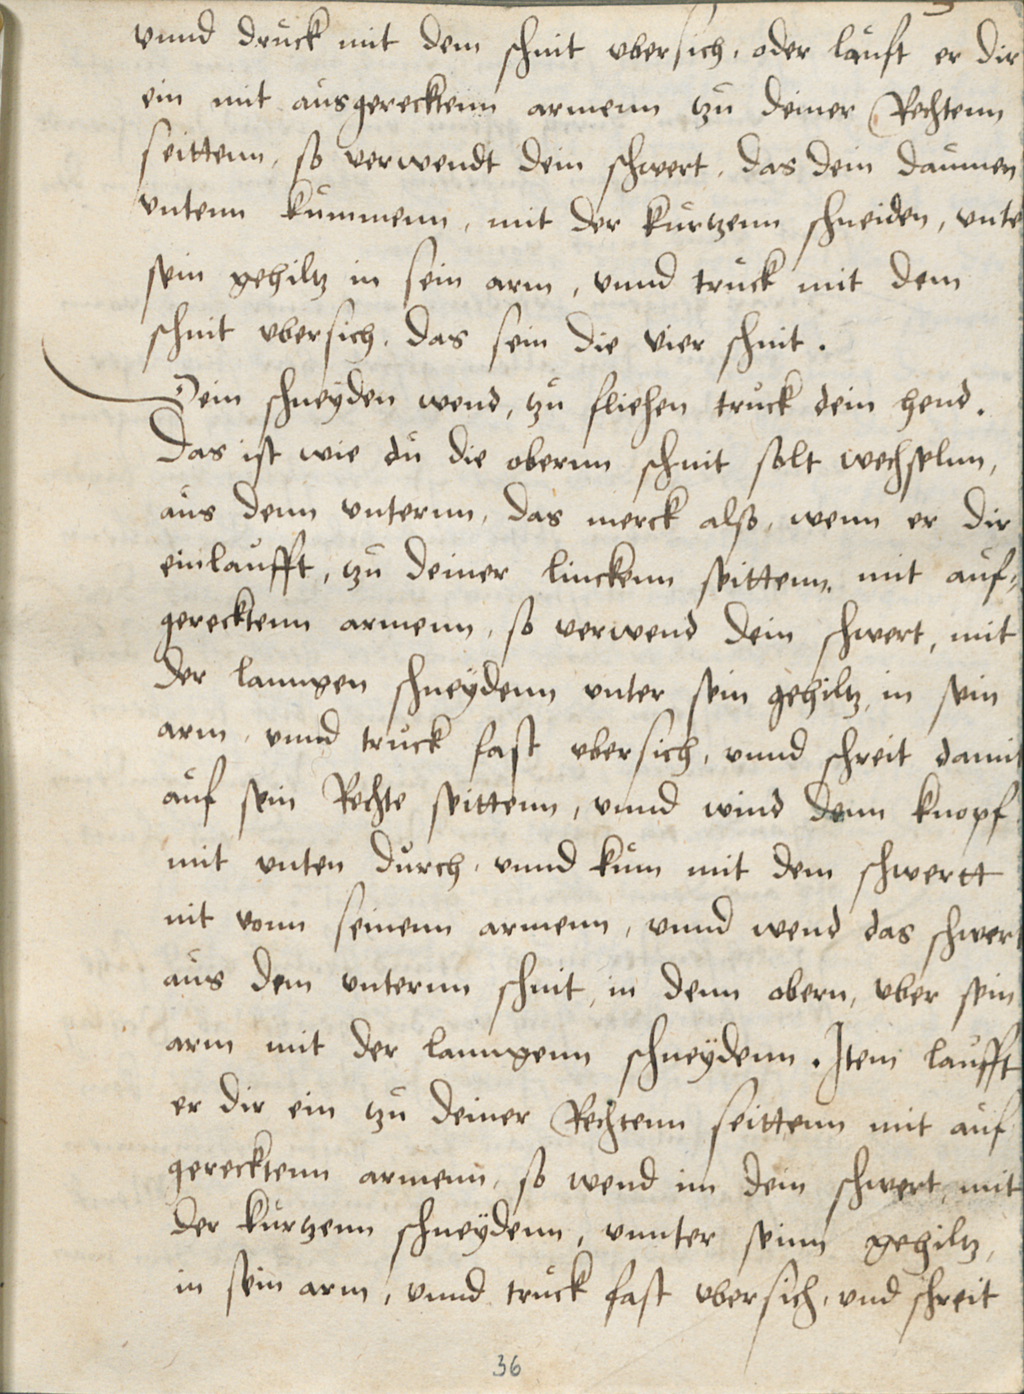 vnnd druck mit dem schnit vbersich, oder lauft er dir
ein mit ausgerecktenn armenn tzu deiner Rechtenn
seittenn, so verwendt dein schwert, das dein daumen
vntenn kummenn, mit der kurtzenn schneiden, vnte
sein gehiltz in sein arm, vnnd truck mit dem
schnit vbersich, das sein die vier schnit.
Dein schneyden wend, tzu fliehen truck dein hend.
Das ist wie du die obernn schnit solt wechselnn,
aus denn vnternn, das merck also, wenn er dir
einlaufft, tzu deiner linckenn seittenn, mit auf-
gerecktenn armenn, so verwend dein schwert, mit
der lanngen schneydenn vnter sein gehiltz, in sein
arm, vnnd truck fast vbersich, vnnd schreit damit
auf sein Rechte seittenn, vnnd wind denn knopf
mit vnten durch, vnnd kum mit dem schwertt
nit vonn seinenn armenn, vnnd wend das schwert
aus dem vnternn schnit, in denn obern, vber sein
arm mit der lanngenn schneydenn. Item laufft
er dir ein tzu deiner Rechtenn seittenn mit auf
gerecktenn armenn, so wend im dein schwert, mit
der kurtzenn schneydenn, vnnter seinn gehiltz,
in sein arm, vnnd truck fast vbersich, vnd schreit
36